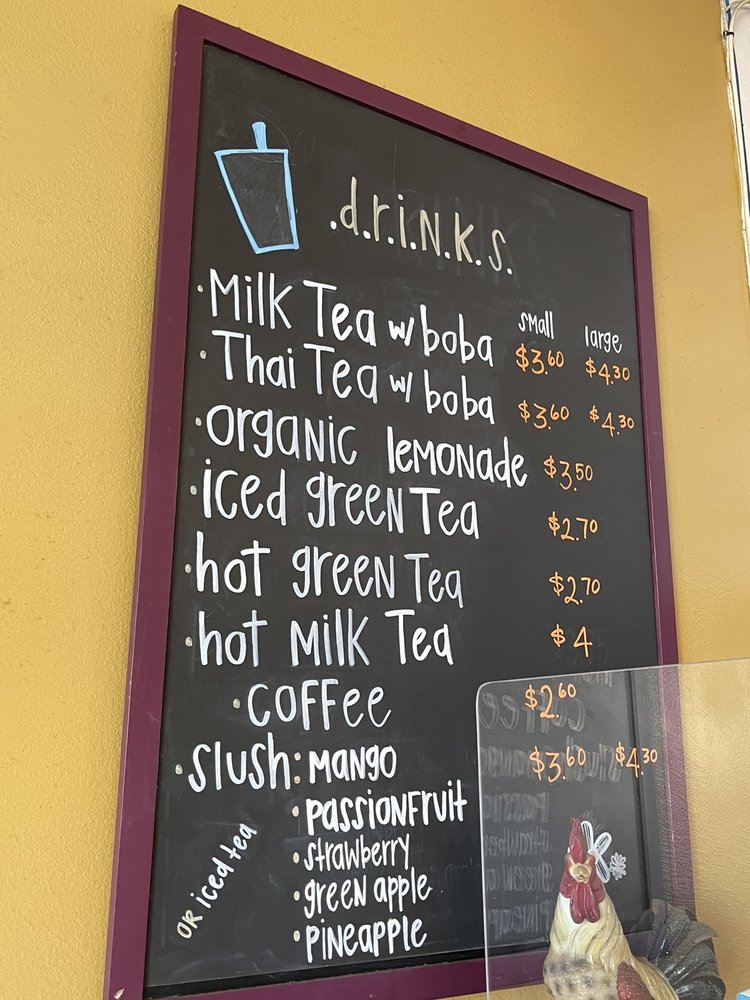 .d.r.i.N.K.S.
small large
·Milk Tea w/ boba $3.60 $4.30
·Thai Tea w/ boba $3.60 $4.30
·organic lemonade $3.50
·iced green Tea $2.70
·hot green Tea $2.70
·hot Milk Tea $4
·coffee $2.60
·slush: Mango $3.60 $4.30
·passionfruit
·strawberry
·green apple
·pineapple
OR iced tea